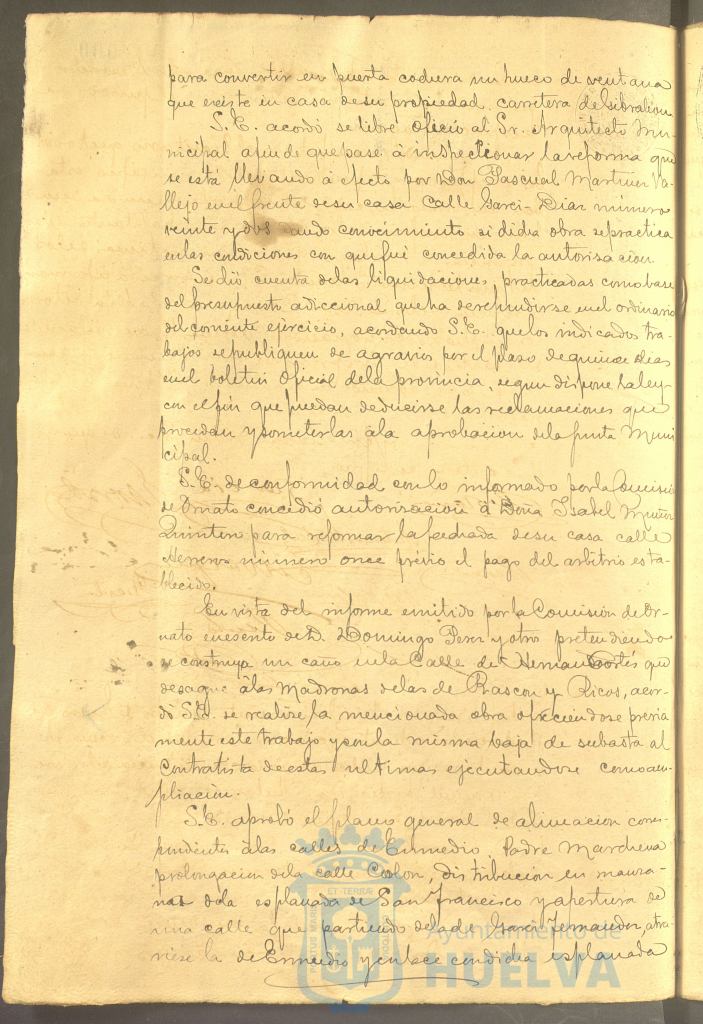 para convertir en puerta cochera un hueco de ventana
que existe en casa de su propiedad, carretera de Gibraleon.
S. E. acordó se libre oficio al Sr. Arquitecto Mu-
nicipal afin de que pase á inspeccionar la reforma que
se está llevando á efecto por Don Pascual Martinez Va-
llejo en el frente de su casa calle Garci-Diaz número
veinte y dos ando conocimiento si dicha obra se practica
en las condiciones con que fué concedida la autorizacion.
Se dió cuenta de las liquidaciones practicadas como base
del presupuesto adiccional que ha de refundirse en el ordinario
del corriente ejercicio, acordando S. E. que los indicados tra-
bajos se publiquen de agravios por el plazo de quince dias
en el boletin oficial de la provincia, segun dispone la ley
con el fin que puedan deducirse las reclamaciones que
procedan y someterlas á la aprobacion de la Junta Muni
cipal.
S. E. de conformidad con lo informado por la Comision
de Ornato concedió autorizacion á Doña Isabel Muñoz
Quintero para reformar la fachada de su casa calle
Herreros número once prévio el pago del arbitrio esta-
blecido.
En vista del informe emitido por la Comision de Or-
nato en escrito de D. Domingo Perez y otros pretendiendo
se construya un caño en la Calle de Hernan Cortés que
desague á las Madronas de las de Rascon y Ricos, acor-
dó S. E. se realize la mencionada obra ofreciendose previa
mente este trabajo y con la misma baja de subasta al
contratista de estas ultimas ejecutandose como am-
pliacion.
S. E. aprobó el plano general de alineacion corres-
pondientes á las calles de Enmedio, Padre Marchena
prolongacion de la calle Colon, distribucion en manza-
nas de la esplanada de San Francisco y apertura de
una calle que partiendo de la de Garci-Fernandez, atra-
viese la de Enmedio y cruce con dicha esplanada
ET TERRAE
PORTUS MARIS
CUSTODIA
Ayuntamiento de
HUELVA